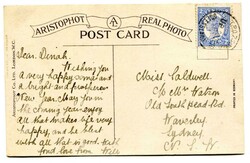 ARISTOPHOT
REAL PHOTO
POST CARD
Dear Dinah,
Wishing you
a very happy
a bright and prosperous
New Year May you in
the coming year enjoy
all that makes life very
happy, and be blest
with all that is good. With
fond love from
Miss Caldwell
C/o Mrs Watson
Old South Head Rd.
Waverley
Sydney
N. S. W